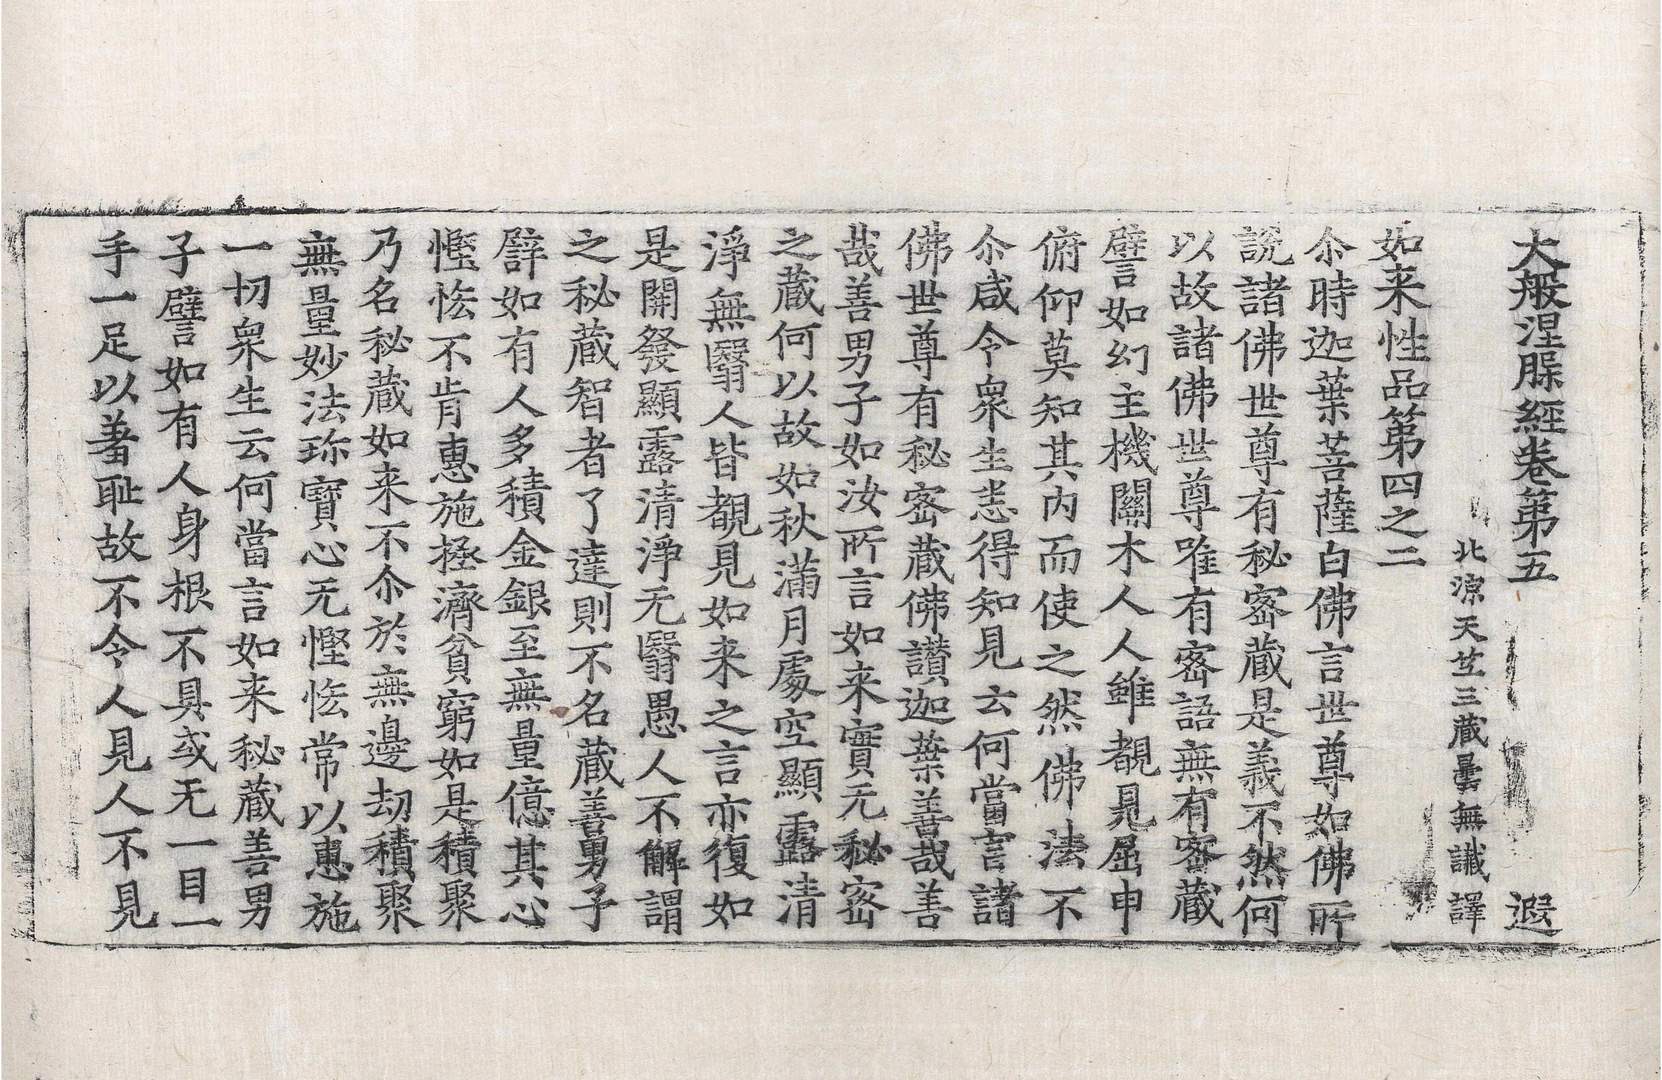 大般涅槃經卷第五　遐
北涼天竺三蔵曇無讖譯
如来性品第四之二
尒時迦葉菩薩白佛言世尊如佛所
說諸佛世尊有秘密蔵是義不然何
以故諸佛世尊唯有密語無有密蔵
譬如幻主機關木人人雖覩見屈申
俯仰莫知其内而使之然佛法不
尒咸令衆生悉得知見云何當言諸
佛世尊有秘密蔵佛讃迦葉善哉善
哉善男子如汝所言如来實无秘密
之蔵何以故如秋滿月處空顯露清
淨無翳人皆覩見如来之言亦復如
是開發顯露清淨无翳愚人不解謂
之秘蔵智者了達則不名蔵善男子
譬如有人多積金銀至無量億其心
慳悋不肯惠施拯濟貧窮如是積聚
乃名秘蔵如来不尒於無邊劫積聚
無量妙法珎寶心无慳悋常以惠施
一切衆生云何當言如来秘蔵善男
子譬如有人身根不具或无一目一
手一足以羞耻故不令人見人不見